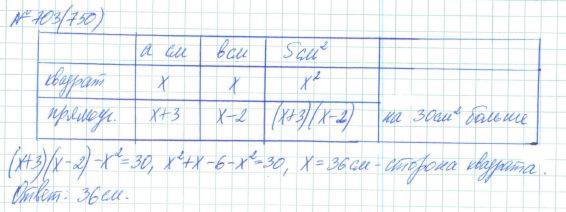 № 703(750)
а см в см S см²
квадрат x x x²
прямоуг. x+3 x-2 (x+3)(x-2) на 30см² больше
(x+3)(x-2)-x²=30, x²+x-6-x²=30, x=36см- сторона квадрата.
Ответ: 36см.